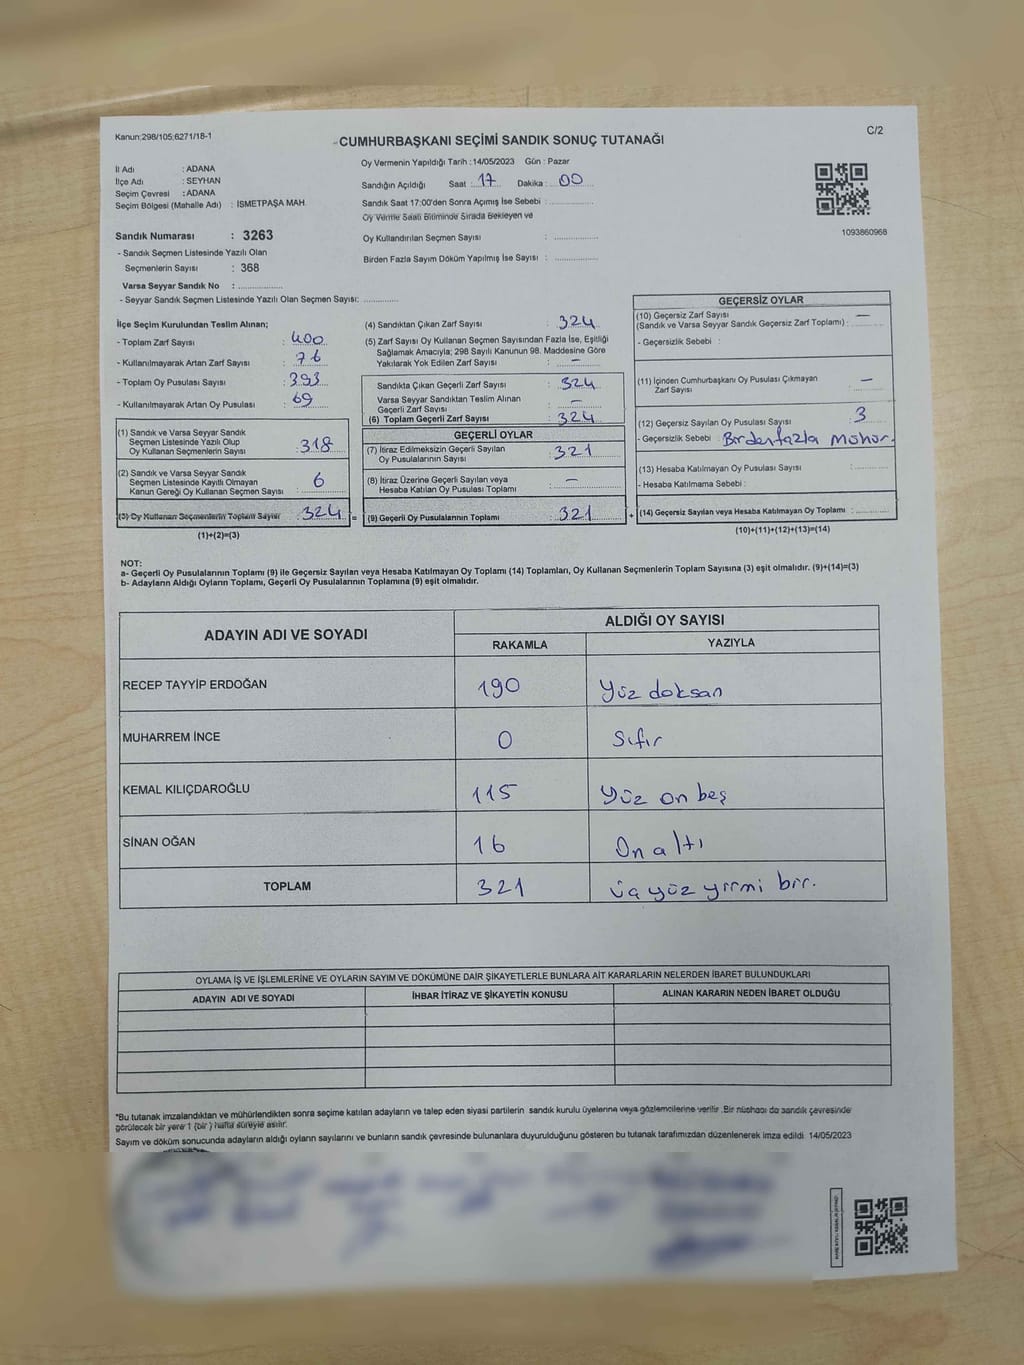 Kanun:298/105;6271/18-1
C/2
CUMHURBAŞKANI SEÇİMİ SANDIK SONUÇ TUTANAĞI
İl Adı : ADANA
İlçe Adı : SEYHAN
Seçim Çevresi : ADANA
Seçim Bölgesi (Mahalle Adı) : İSMETPAŞA MAH.
Sandık Numarası : 3263
- Sandık Seçmen Listesinde Yazılı Olan
Seçmenlerin Sayısı : 368
Varsa Seyyar Sandık No :
- Seyyar Sandık Seçmen Listesinde Yazılı Olan Seçmen Sayısı:
Oy Vermenin Yapıldığı Tarih : 14/05/2023 Gün : Pazar
Sandığın Açıldığı Saat : 17 Dakika : 00
Sandık Saat 17:00'den Sonra Açımış İse Sebebi :
Oy Verme Saati Bitiminde Sırada Bekleyen ve
Oy Kullandırılan Seçmen Sayısı :
Birden Fazla Sayım Döküm Yapılmış İse Sayısı :
1093860968
İlçe Seçim Kurulundan Teslim Alınan;
- Toplam Zarf Sayısı : 400
- Kullanılmayarak Artan Zarf Sayısı : 76
- Toplam Oy Pusulası Sayısı : 393
- Kullanılmayarak Artan Oy Pusulası : 69
(1) Sandık ve Varsa Seyyar Sandık
Seçmen Listesinde Yazılı Olup
Oy Kullanan Seçmenlerin Sayısı : 318
(2) Sandık ve Varsa Seyyar Sandık
Seçmen Listesinde Kayıtlı Olmayan
Kanun Gereği Oy Kullanan Seçmen Sayısı : 6
(3) Oy Kullanan Seçmenlerin Toplam Sayısı : 324 =
(1)+(2)=(3)
(4) Sandıktan Çıkan Zarf Sayısı : 324
(5) Zarf Sayısı Oy Kullanan Seçmen Sayısından Fazla İse, Eşitliği
Sağlamak Amacıyla; 298 Sayılı Kanunun 98. Maddesine Göre
Yakılarak Yok Edilen Zarf Sayısı : —
Sandıkta Çıkan Geçerli Zarf Sayısı : 324
Varsa Seyyar Sandıktan Teslim Alınan
Geçerli Zarf Sayısı : —
(6) Toplam Geçerli Zarf Sayısı : 324
GEÇERLİ OYLAR
(7) İtiraz Edilmeksizin Geçerli Sayılan
Oy Pusulalarının Sayısı : 321
(8) İtiraz Üzerine Geçerli Sayılan veya
Hesaba Katılan Oy Pusulası Toplamı : —
(9) Geçerli Oy Pusulalarının Toplamı : 321 +
GEÇERSİZ OYLAR
(10) Geçersiz Zarf Sayısı —
(Sandık ve Varsa Seyyar Sandık Geçersiz Zarf Toplamı) :
- Geçersizlik Sebebi :
(11) İçinden Cumhurbaşkanı Oy Pusulası Çıkmayan
Zarf Sayısı : —
(12) Geçersiz Sayılan Oy Pusulası Sayısı : 3
- Geçersizlik Sebebi : Birden fazla mühür.
(13) Hesaba Katılmayan Oy Pusulası Sayısı :
- Hesaba Katılmama Sebebi :
(14) Geçersiz Sayılan veya Hesaba Katılmayan Oy Toplamı :
(10)+(11)+(12)+(13)=(14)
NOT:
a- Geçerli Oy Pusulalarının Toplamı (9) ile Geçersiz Sayılan veya Hesaba Katılmayan Oy Toplamı (14) Toplamları, Oy Kullanan Seçmenlerin Toplam Sayısına (3) eşit olmalıdır. (9)+(14)=(3)
b- Adayların Aldığı Oyların Toplamı, Geçerli Oy Pusulalarının Toplamına (9) eşit olmalıdır.
ADAYIN ADI VE SOYADI
ALDIĞI OY SAYISI
RAKAMLA YAZIYLA
RECEP TAYYİP ERDOĞAN 190 Yüz doksan
MUHARREM İNCE 0 Sıfır
KEMAL KILIÇDAROĞLU 115 Yüz on beş
SİNAN OĞAN 16 On altı
TOPLAM 321 üç yüz yirmi bir.
OYLAMA İŞ VE İŞLEMLERİNE VE OYLARIN SAYIM VE DÖKÜMÜNE DAİR ŞİKAYETLERLE BUNLARA AİT KARARLARIN NELERDEN İBARET BULUNDUKLARI
ADAYIN ADI VE SOYADI İHBAR İTİRAZ VE ŞİKAYETİN KONUSU ALINAN KARARIN NEDEN İBARET OLDUĞU
*Bu tutanak imzalandıktan ve mühürlendikten sonra seçime katılan adayların ve talep eden siyasi partilerin sandık kurulu üyelerine veya gözlemcilerine verilir. Bir nüshası da sandık çevresinde
görülecek bir yere 1 (bir) hafta süreyle asılır.
Sayım ve döküm sonucunda adayların aldığı oyların sayılarını ve bunların sandık çevresinde bulunanlara duyurulduğunu gösteren bu tutanak tarafımızdan düzenlenerek imza edildi 14/05/2023